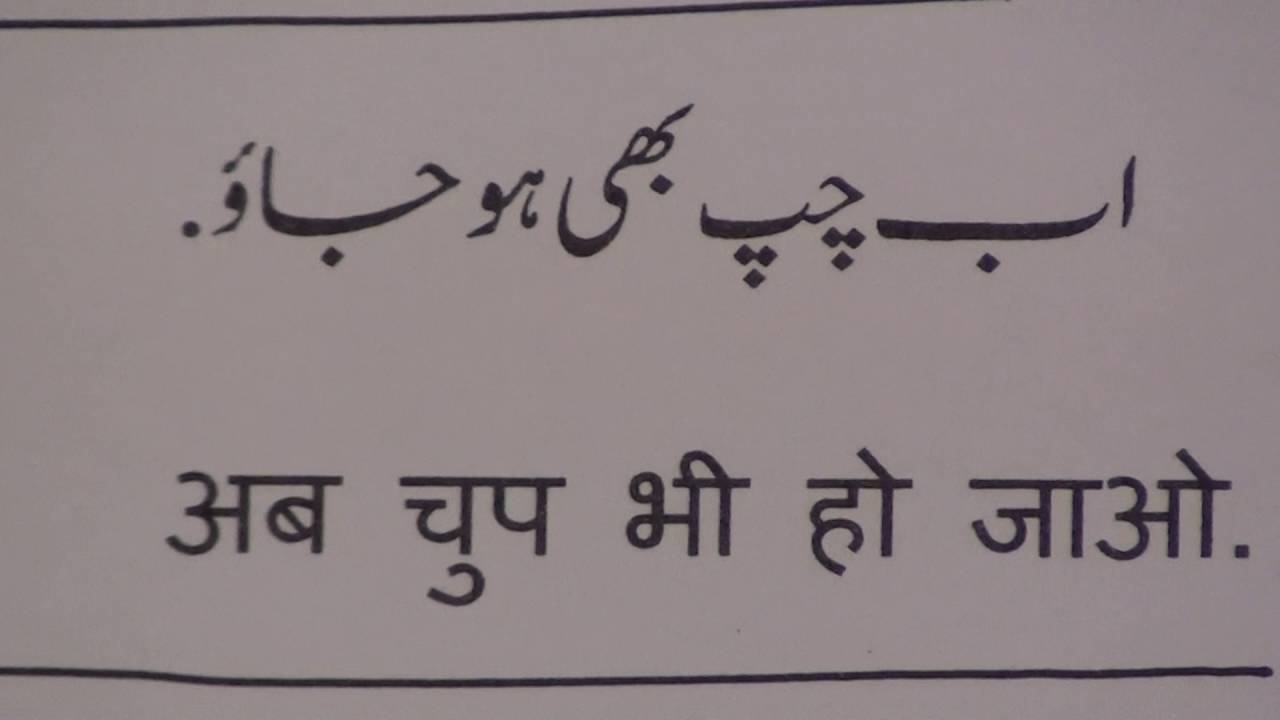 اب چپ بھی ہو جاؤ.
अब चुप भी हो जाओ.